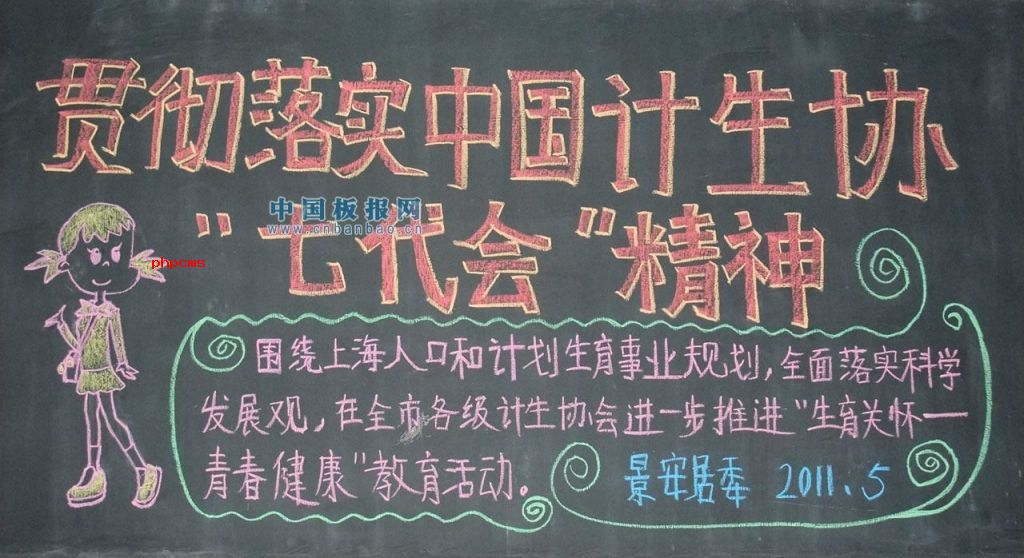 贯彻落实中国计生协
中国板报网
www.cnbanbao.cn
"七代会"精神
phpcms
围绕上海人口和计划生育事业规划,全面落实科学
发展观,在全市各级计生协会进一步推进"生育关怀一
青春健康"教育活动。
景安居委 2011、5